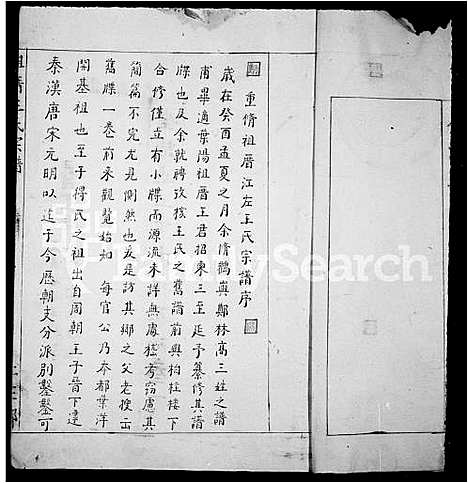 重脩祖厝江左王氏宗譜序
歲在癸酉孟夏之月余脩鶴與鄭林高三姓之譜
甫畢適葉陽祖厝王君招東三至延予纂修其譜
牒也及余就聘攷核王氏之舊譜前與柏柱楼下
合修僅立有小牒而源流未詳無處稽考窃慮其
簡篇不完尤見惻然也友是訪其鄉之父老搜出
舊牒一卷前来觀覽始知 每官公乃本都葉洋
開基祖也至于得氏之祖出自周朝王子晉下逮
秦漢唐宋元明以迄于今歷朝支分派別鑿鑿可
祖厝王氏宗譜
FamilySearch